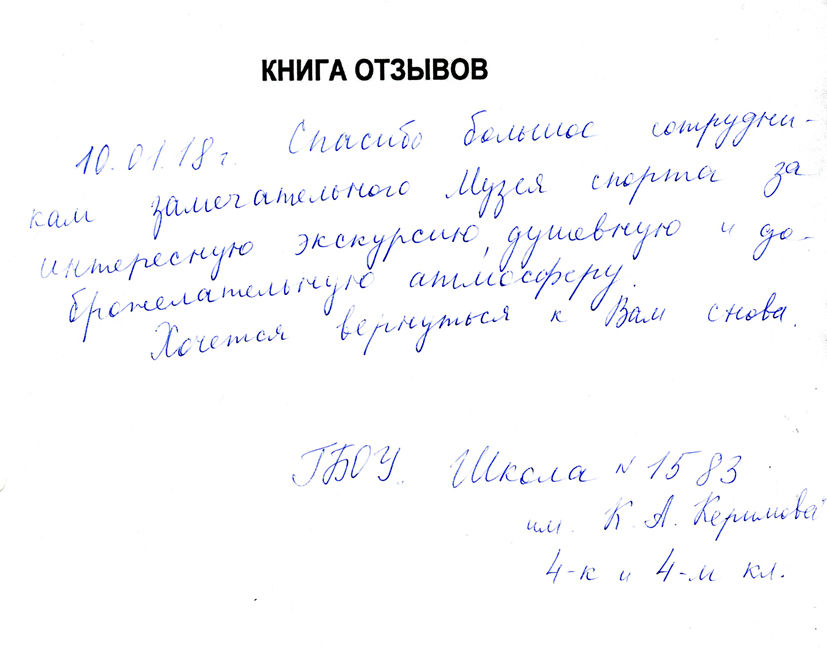 КНИГА ОТЗЫВОВ
10.01.18 г. Спасибо большое сотрудни-
кам замечательного Музея спорта за
интересную экскурсию, душевную и до-
брожелательную атмосферу.
Хочется вернуться к Вам снова.
ГБОУ. Школа № 1583
им. К. А. Керимова
4-к и 4-м кл.